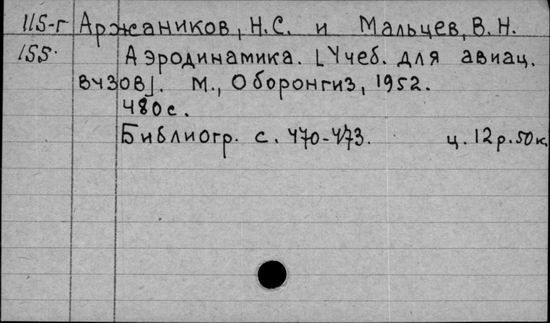 115-г Аржаников, Н.С. и Мальцев, В.Н.
155. Аэродинамика. [Учеб. для авиац.
вузов]. М., Оборонгиз, 1952.
480с.
Библиогр. с. 470-473. ц. 12р.50к